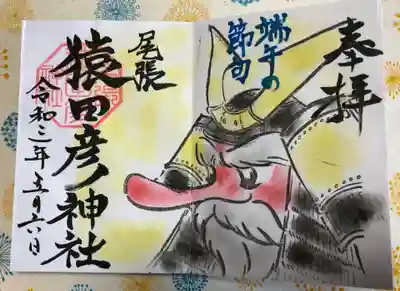 奉拝
端午の
節句
尾張
猿田彦ノ神社
令和三年五月六日